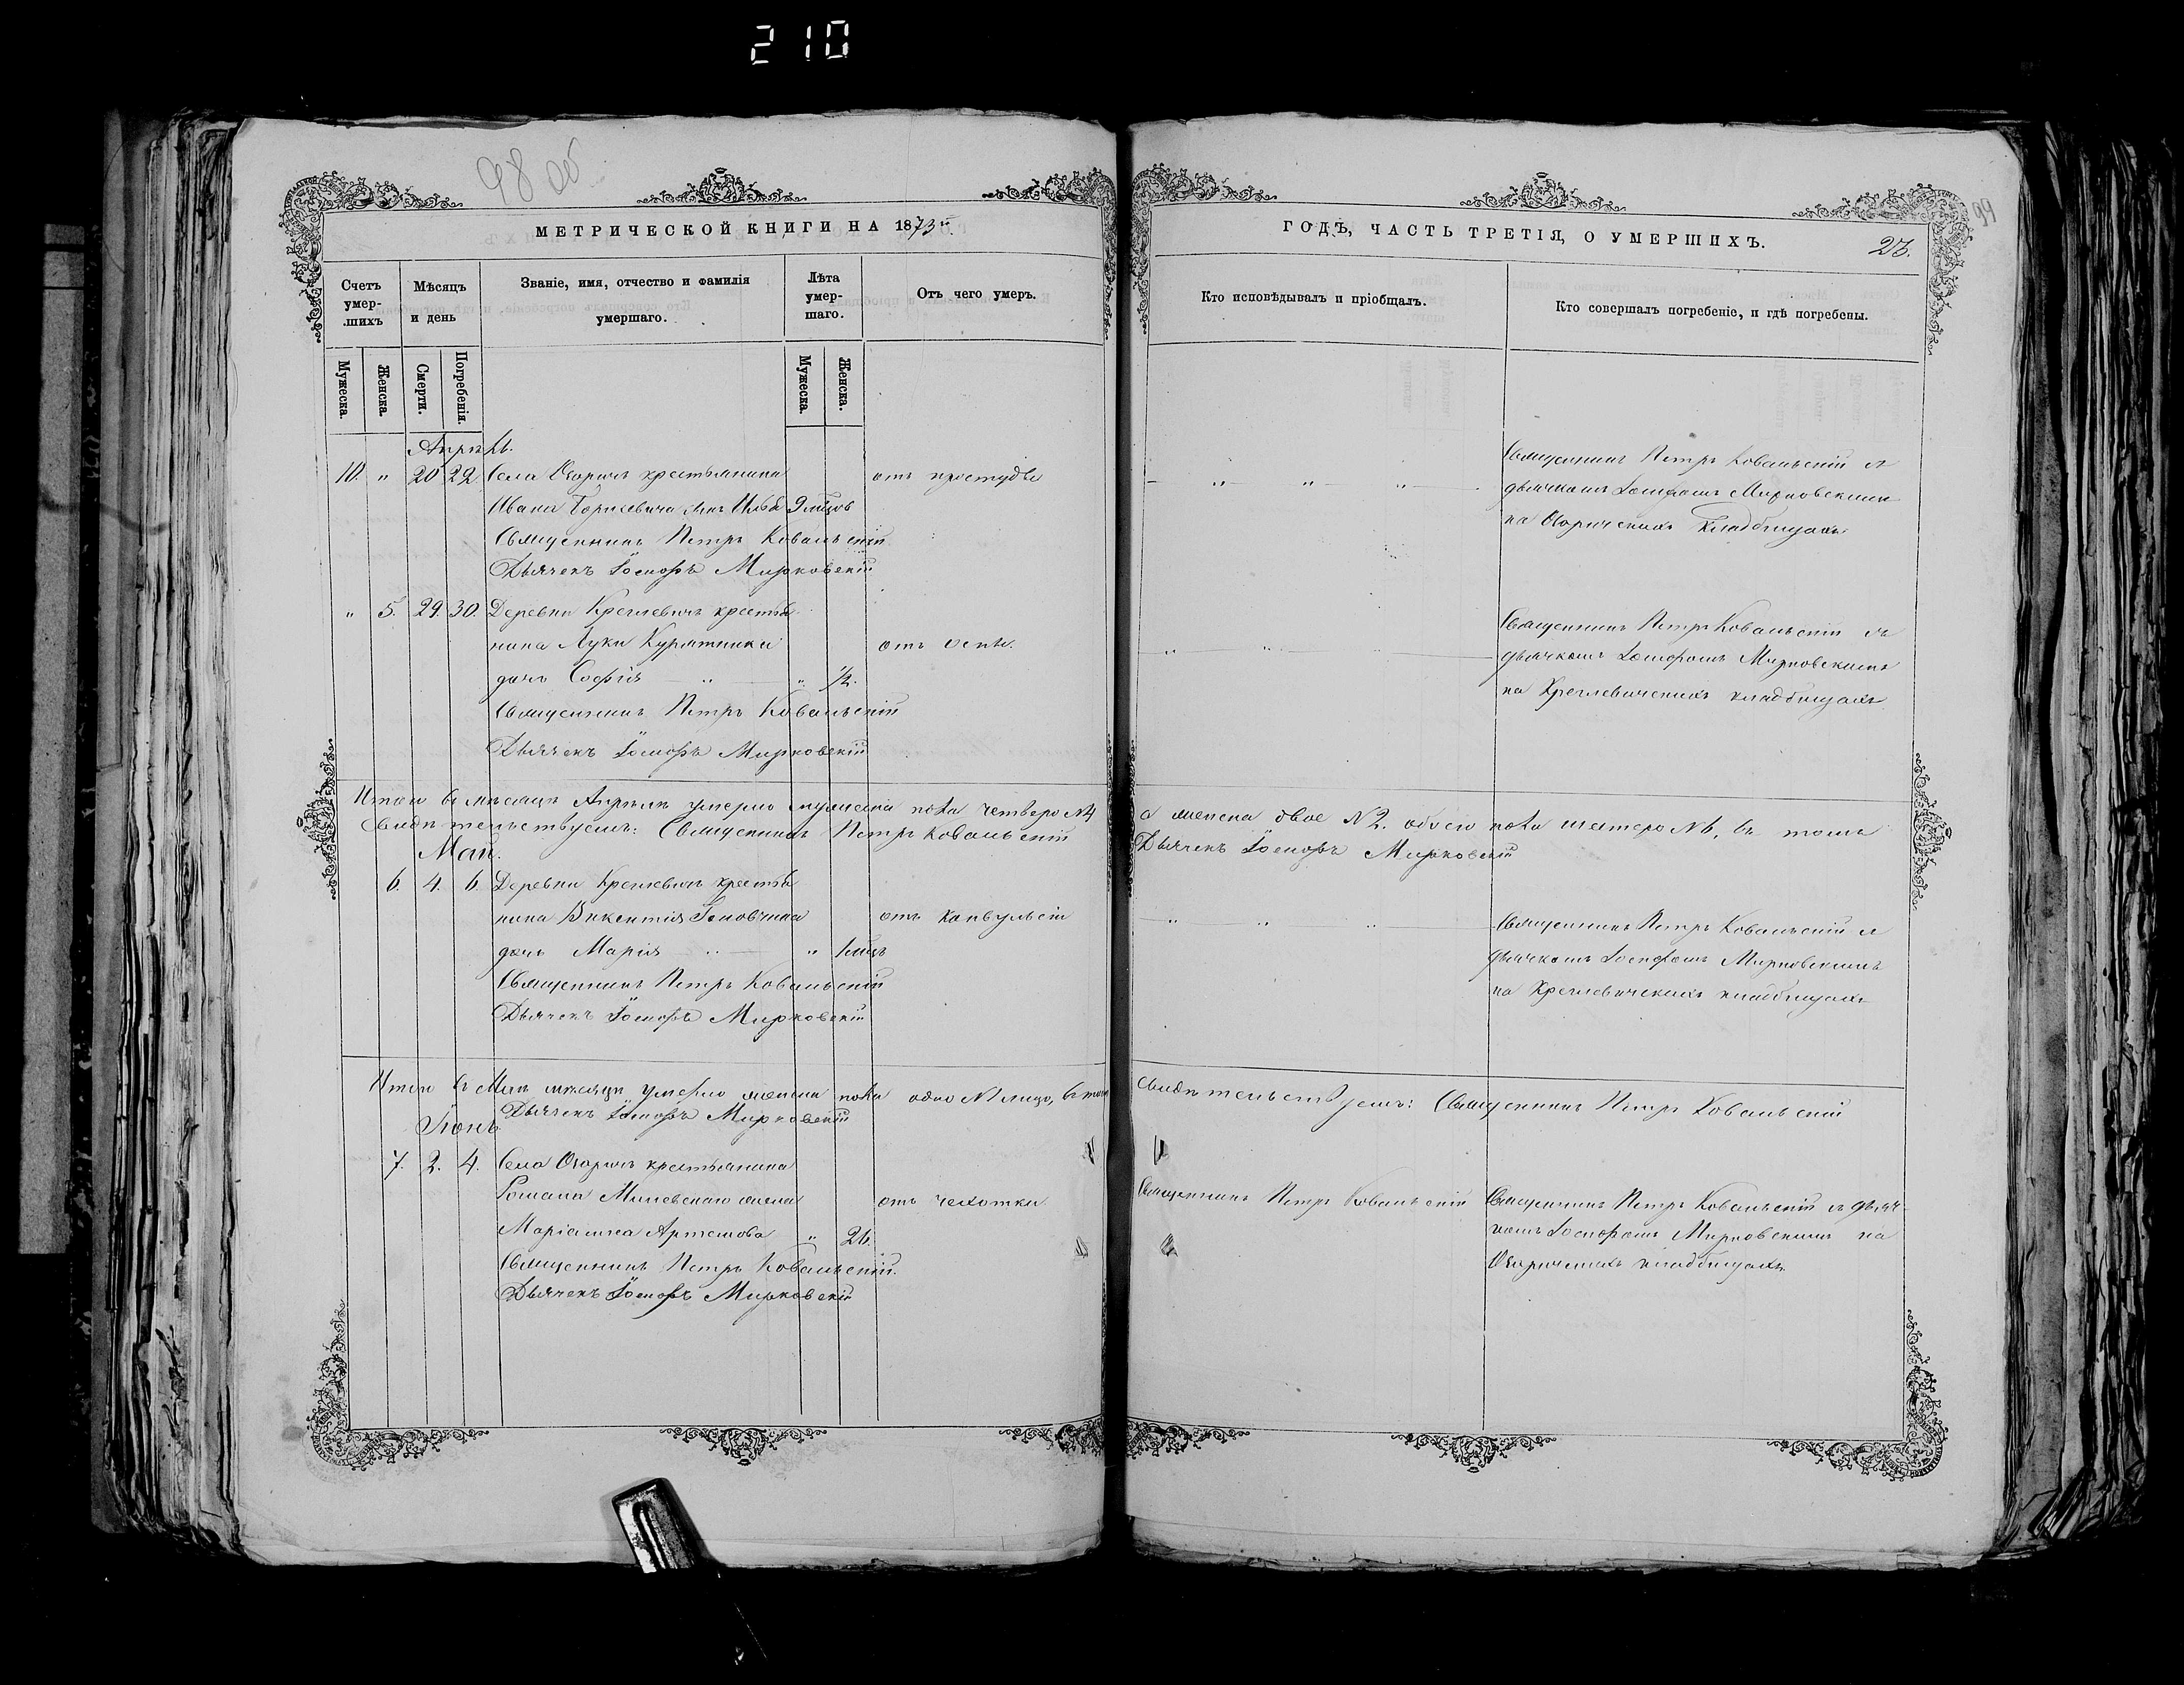 210
98 об
МЕТРИЧЕСКОЙ КНИГИ НА 1873й
Счетъ умершихъ
Мѣсяцъ и день
Званіе, имя, отчество и фамилія умершаго.
Лѣта умершаго.
Отъ чего умеръ.
Мужеска.
Женска.
Смерти.
Погребенія.
Мужеска.
Женска.
Апрѣль.
10. " 20 22 Села Охоричъ крестьянина отъ простуды
Ивана сынъ 9 мцовъ
Священникъ Петръ Ковальскій
Дьячекъ Іосифъ Мирковскій
" 5. 29. 30. Деревни Креглевичъ крестья
нина Луки Курятника отъ оспы.
дочь Софія " " 1/2.
Священникъ Петръ Ковальскій
Дьячекъ Іосифъ Мирковскій
Итого въ мѣсяцѣ Апрѣлѣ умерло мужеска пола четверо №4
Свидѣтельствуемъ: Священникъ Петръ Ковальскій
Май.
6. 4. 6. Деревни Креглевичъ крестья
нина Викентія отъ конвульсіи
дочь Марія " " 1 мцъ
Священникъ Петръ Ковальскій
Дьячекъ Іосифъ Мирковскій
Итого въ Маѣ мѣсяцѣ умерло женска пола одно №1 лицо, въ томъ
Дьячекъ Іосифъ Мирковскій
Іюнь.
7. 2. 4. Села Охоричъ крестьянина
Романа Милевскаго жена отъ чехотки
Маріанна Артемова " 26.
Священникъ Петръ Ковальскій.
Дьячекъ Іосифъ Мирковскій
99
ГОДЪ, ЧАСТЬ ТРЕТІЯ, О УМЕРШИХЪ.
23.
Кто исповѣдывалъ и пріобщалъ.
Кто совершалъ погребеніе, и гдѣ погребены.
Священникъ Петръ Ковальскій съ
" " " дьячкомъ Іосифомъ Мирковскимъ
на Охоричскихъ кладбищахъ
Священникъ Петръ Ковальскій съ
" " дьячкомъ Іосифомъ Мирковскимъ
на Креглевичскихъ кладбищахъ
а женска двое №2. обоего пола шестеро №6, въ томъ
Дьячекъ Іосифъ Мирковскій
" " " Священникъ Петръ Ковальскій съ
дьячкомъ Іосифомъ Мирковскимъ
на Креглевичскихъ кладбищахъ
свидѣтельствуемъ: Священникъ Петръ Ковальскій
Священникъ Петръ Ковальскій
Священникъ Петръ Ковальскій съ дьяч-
комъ Іосифомъ Мирковскимъ на
Охоричскихъ кладбищахъ